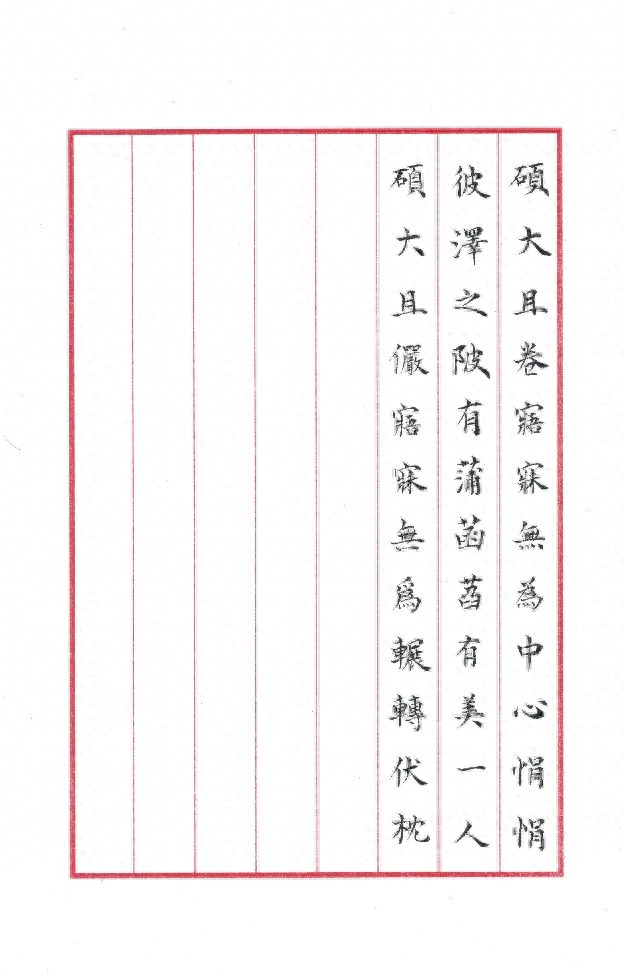 碩大且卷寤寐無為中心悁悁
彼澤之陂有蒲菡萏有美一人
碩大且儼寤寐無爲輾轉伏枕